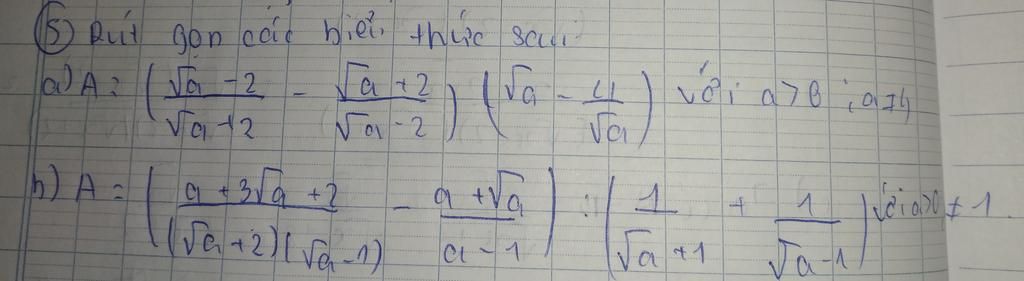 ⑤ Rút gọn các biểu thức sau:
a) A = (√a - 2 / √a + 2 - √a + 2 / √a - 2) (√a - 4 / √a) với a > 0 ; a ≠ 4
b) A = (a + 3√a + 2 / (√a + 2)(√a - 1) - a + √a / a - 1) : (1 / √a + 1 + 1 / √a - 1) với a > 0 ≠ 1.